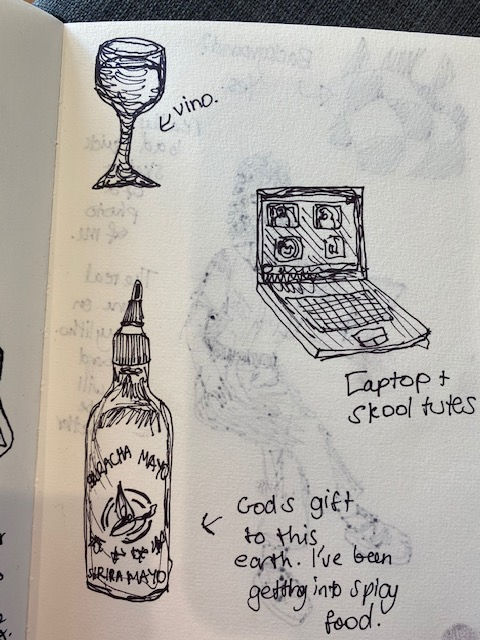 vino.
Laptop +
skool tutes
SRIRACHA MAYO
SRIRA MAYO
God's gift
to this
earth. I've been
getting into spicy
food.